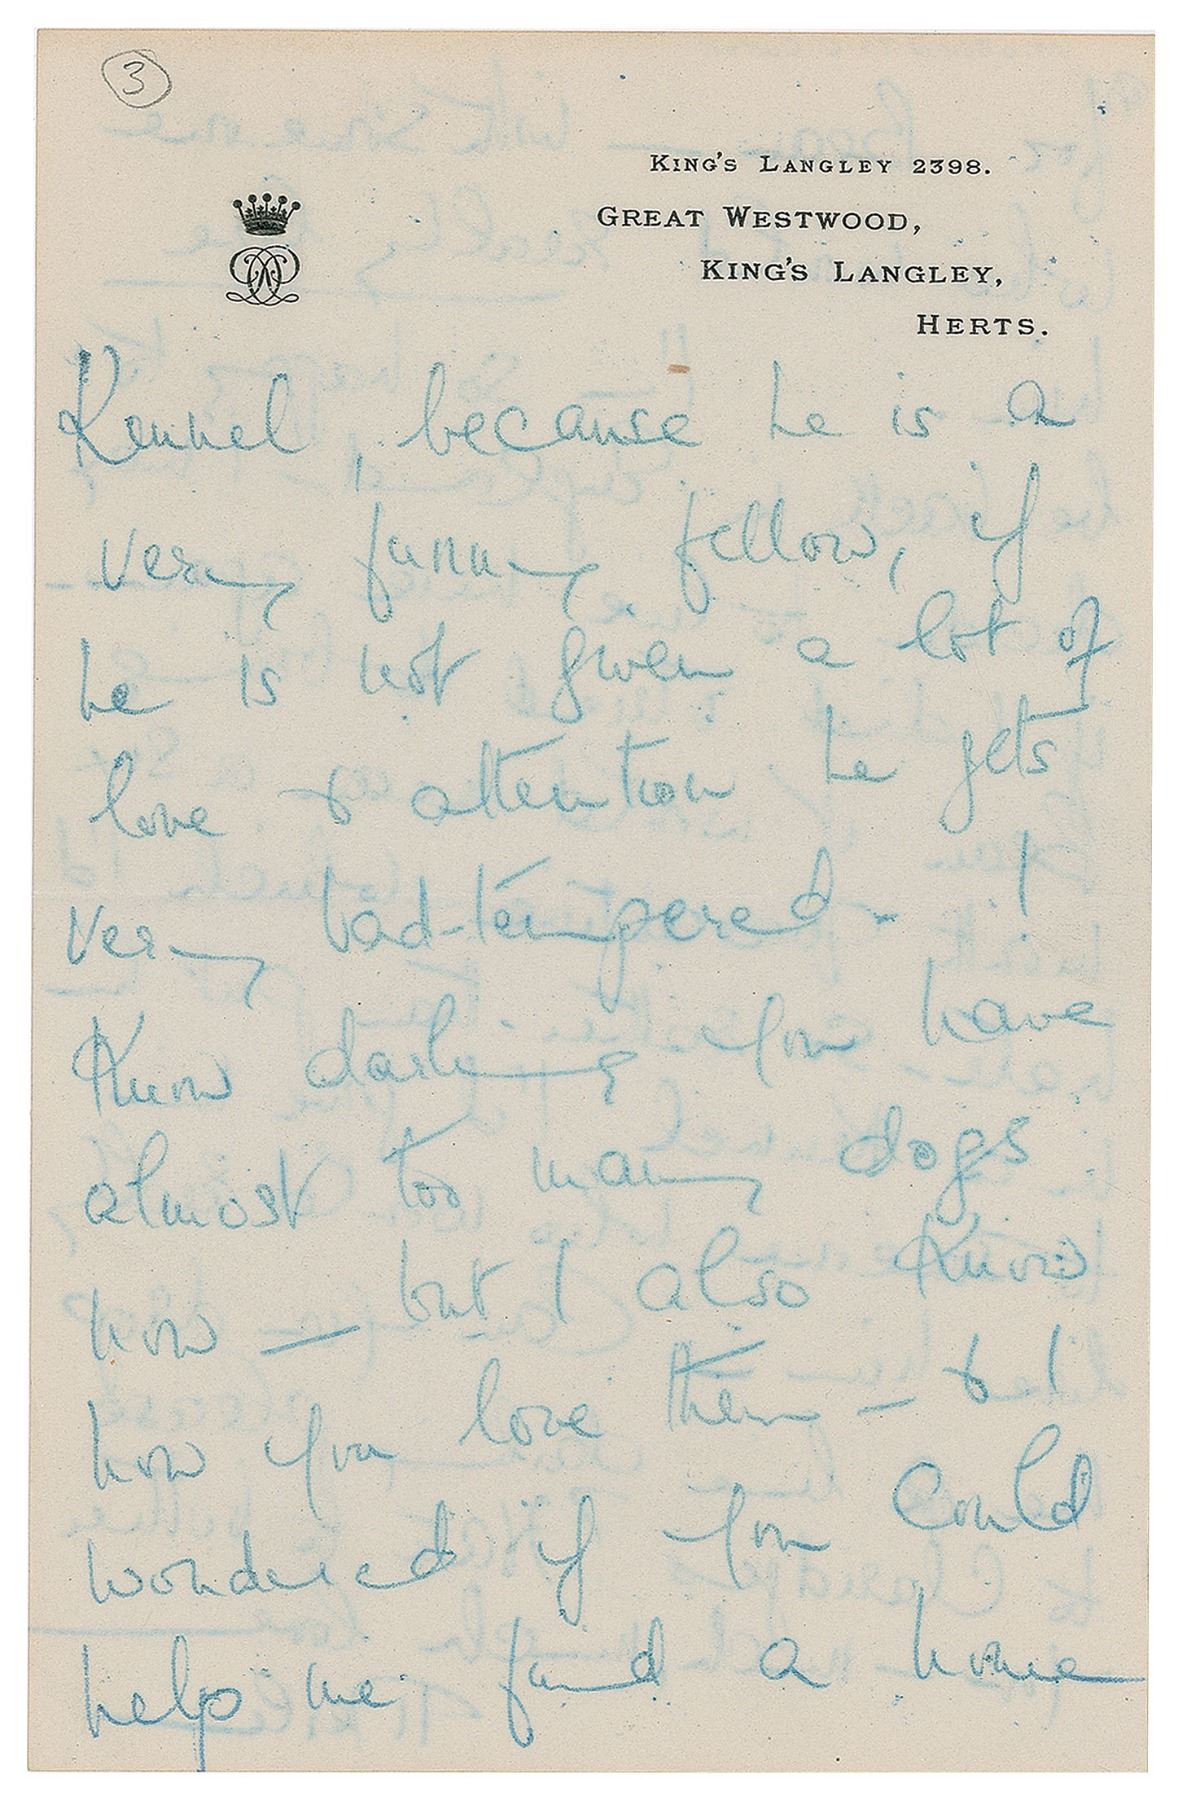 3
KING'S LANGLEY 2398.
GREAT WESTWOOD,
KING'S LANGLEY,
HERTS.
Kennel, because he is a
very funny fellow, if
he is not given a lot of
love & attention he gets
very bad-tempered - I
know darling you have
almost too many dogs
now — but I also know
how you love them - & I
wondered if you could
help me find a home